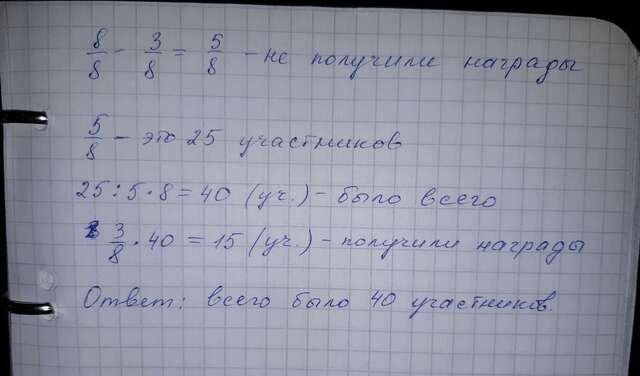 8/8 - 3/8 = 5/8 - не получили награды
5/8 - это 25 участников
25:5·8=40 (уч.) - было всего
3/8 · 40 = 15 (уч.) - получили награды
Ответ: всего было 40 участников.